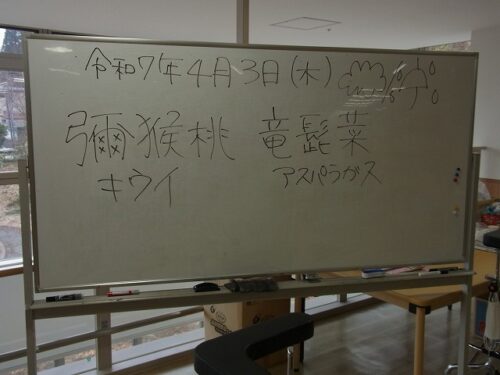 令和7年4月3日(木)
彌猴桃 竜髭菜
キウイ アスパラガス